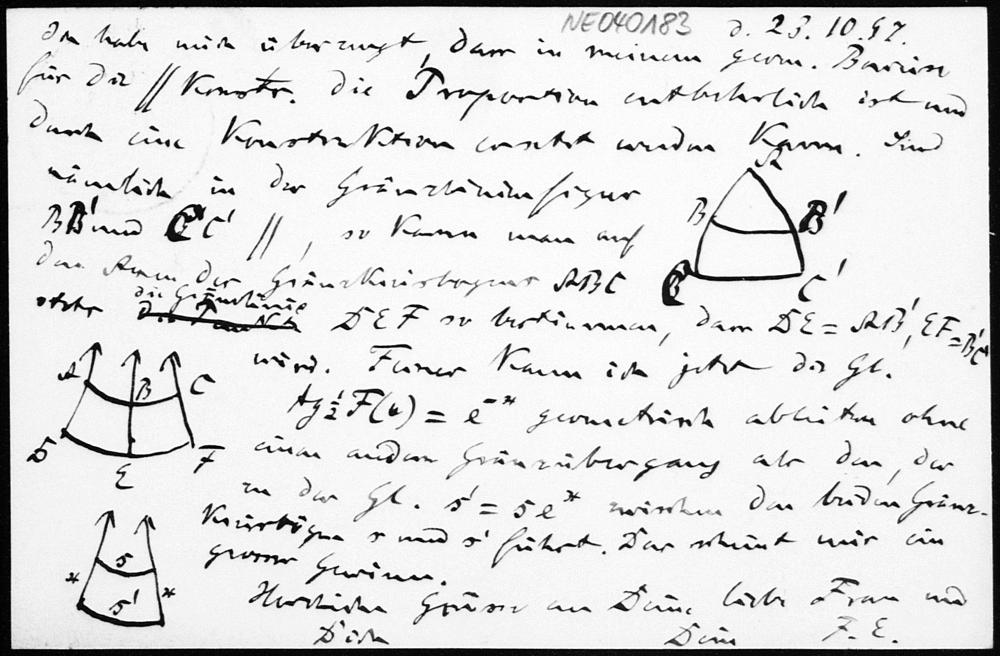 NE040183 d. 23. 10. 47.
Ich habe mich überzeugt, dass in meinem geom. Beweise
für die // Konstr. die Proportion entbehrlich ist und
durch eine Konstruktion ersetzt werden kann. Sind
nämlich in der Gränzlinienfigur
BB' und CC' //, so kann man auf
den Axen des Gränzkreisbogens ABC
stets die Gränzlinie DEF so bestimmen, dass DE = AB', EF = B'C'
wird. Ferner kann ich jetzt die Gl.
tg ½ F(x) = e⁻ˣ geometrisch ableiten ohne
einen andern Gränzübergang als den, der
zu der Gl. s' = s eˣ zwischen den beiden Gränz-
kreisbögen s und s' führt. Das scheint mir ein
grosser Gewinn.
Herzliche Grüsse an Deine liebe Frau und
Dich Dein F. E.
A
B B'
C C'
A B C
D E F
s
x x
s'